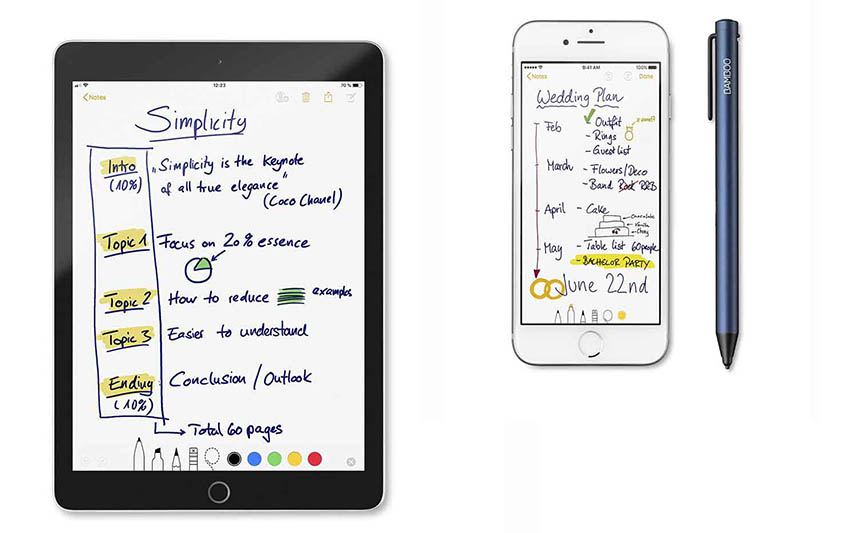 12:23
70 %
Notes
Simplicity
Intro
(10%)
„Simplicity is the keynote
of all true elegance"
(Coco Chanel)
Topic 1
Focus on 20% essence
Topic 2
How to reduce
examples
Topic 3
Easier to understand
Ending
(10%)
Conclusion / Outlook
Total 60 pages
9:41 AM
100%
Notes
Done
Wedding Plan
Feb
Outfit
- Rings
- Guest list
March
- Flowers/Deco
- Band Rock R&B
April
- Cake
Chocolate
Vanilla
May
- Table list 60 people
- BACHELOR PARTY
June 22nd
BAMBOO